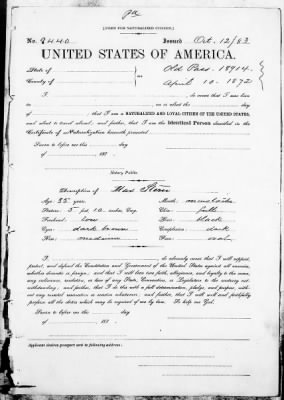 pa
[FORM FOR NATURALIZED CITIZEN.]
No. 8440 Issued Oct. 12/83
UNITED STATES OF AMERICA.
State of Old Pass. 18914.
County of ss: April 10. 1872
I , do swear that I was born
in on or about the day
of , that I am a NATURALIZED AND LOYAL CITIZEN OF THE UNITED STATES,
and about to travel abroad; and further, that I am the Identical Person described in the
Certificate of Naturalization herewith presented.
Sworn to before me this day
of , 187 .
Notary Public.
Description of Max Stern
Age: 55 year. Mouth: moustache
Stature: 5 feet, 10 inches Eng. Chin: full
Forehead: low Hair: black
Eyes: dark brown Complexion: dark
Nose: medium Face: oval
I, , do solemnly swear that I will support,
protect, and defend the Constitution and Government of the United States against all enemies,
whether domestic or foreign; and that I will bear true faith, allegiance, and loyalty to the same,
any ordinance, resolution, or law of any State, Convention, or Legislature to the contrary not-
withstanding; and further, that I do this with a full determination, pledge, and purpose, with-
out any mental reservation or evasion whatsoever; and further, that I will well and faithfully
perform all the duties which may be required of me by law. So help me God.
Sworn to before me this day
of , 187 .
Applicant desires passport sent to following address: